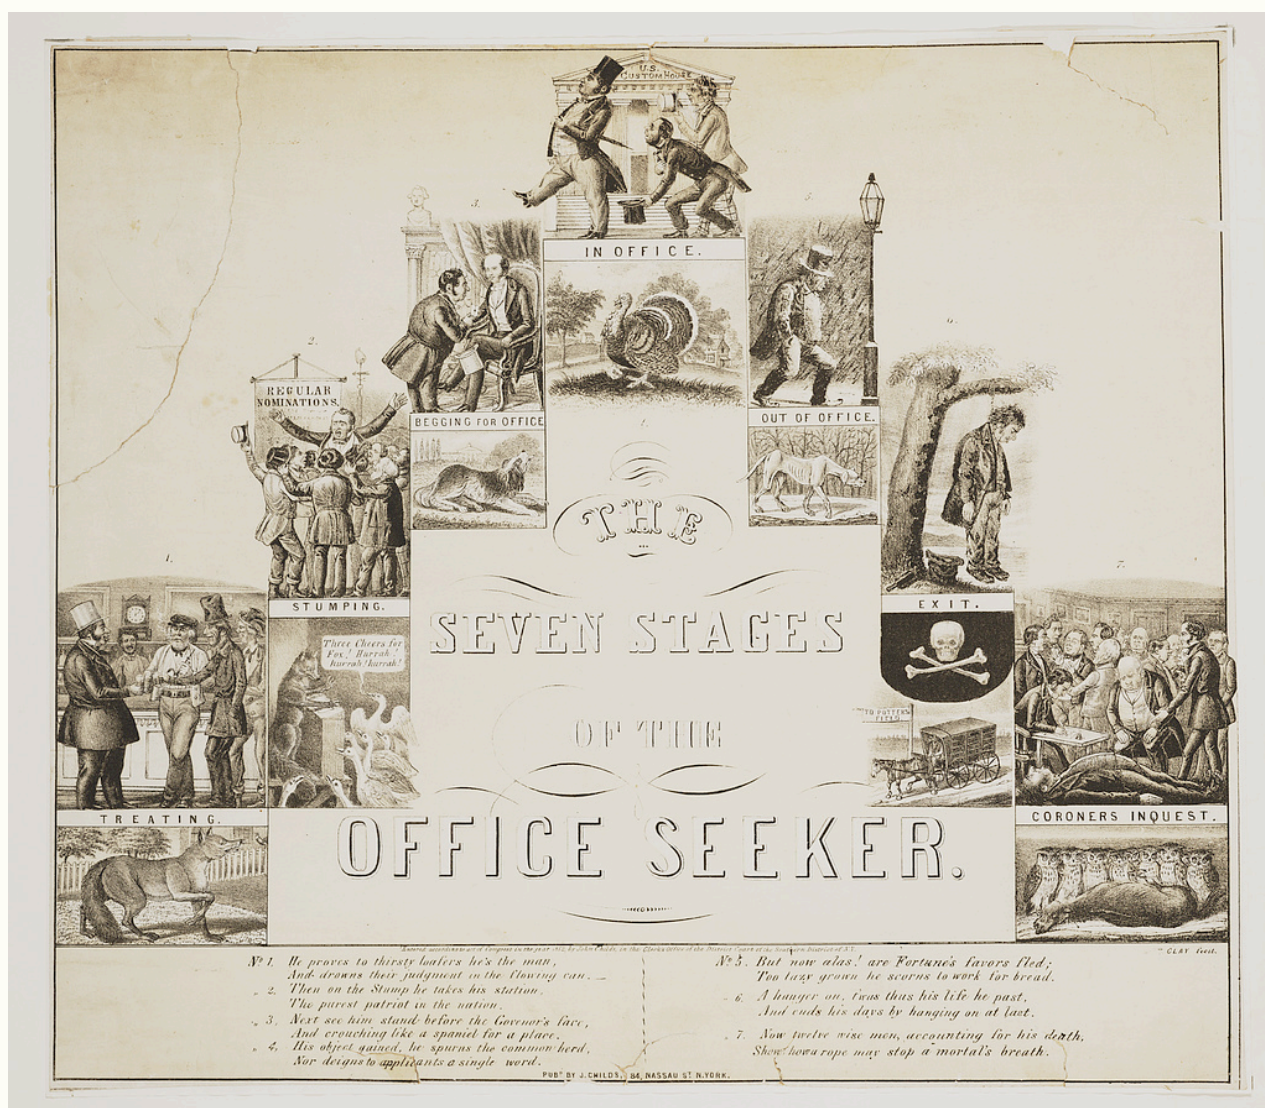 U.S.
CUSTOM HOUSE
IN OFFICE.
3.
5.
BEGGING FOR OFFICE
OUT OF OFFICE.
4.
2.
6.
REGULAR
NOMINATIONS.
STUMPING.
EXIT.
Three Cheers for
Fox! Hurrah!
hurrah! hurrah!
TO POTTERS
FIELD
1.
7.
TREATING.
CORONERS INQUEST.
THE
SEVEN STAGES
OF THE
OFFICE SEEKER.
Entered according to act of Congress in the year 1852, by John Childs, in the Clerks Office of the District Court of the Southern District of N.Y.
CLAY fecit.
No 1. He proves to thirsty loafers he's the man,
And drowns their judgment in the flowing can.
" 2. Then on the Stump he takes his station,
The purest patriot in the nation.
" 3. Next see him stand before the Govenor's face,
And crouching like a spaniel for a place.
" 4. His object gained, he spurns the common herd,
Nor deigns to applicants a single word.
No 5. But now alas! are Fortune's favors fled;
Too lazy grown he scorns to work for bread.
" 6. A hanger on, t'was thus his life he past,
And ends his days by hanging on at last.
" 7. Now twelve wise men, accounting for his death,
Show how a rope may stop a mortal's breath.
PUBD. BY J. CHILDS, 84, NASSAU ST. N.YORK.